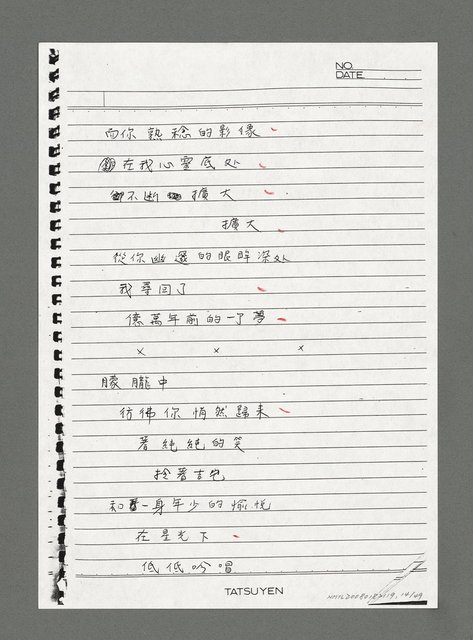 NO.
DATE
而你熟稔的影像
在我心靈底处
不断擴大
擴大
從你幽邃的眼眸深处
我尋回了
億萬年前的一了夢
× × ×
朦朧中
彷彿你悄然歸来
著純純的笑
拎著吉他
和一身年少的愉悅
在星光下
低低吟唱
TATSUYEN